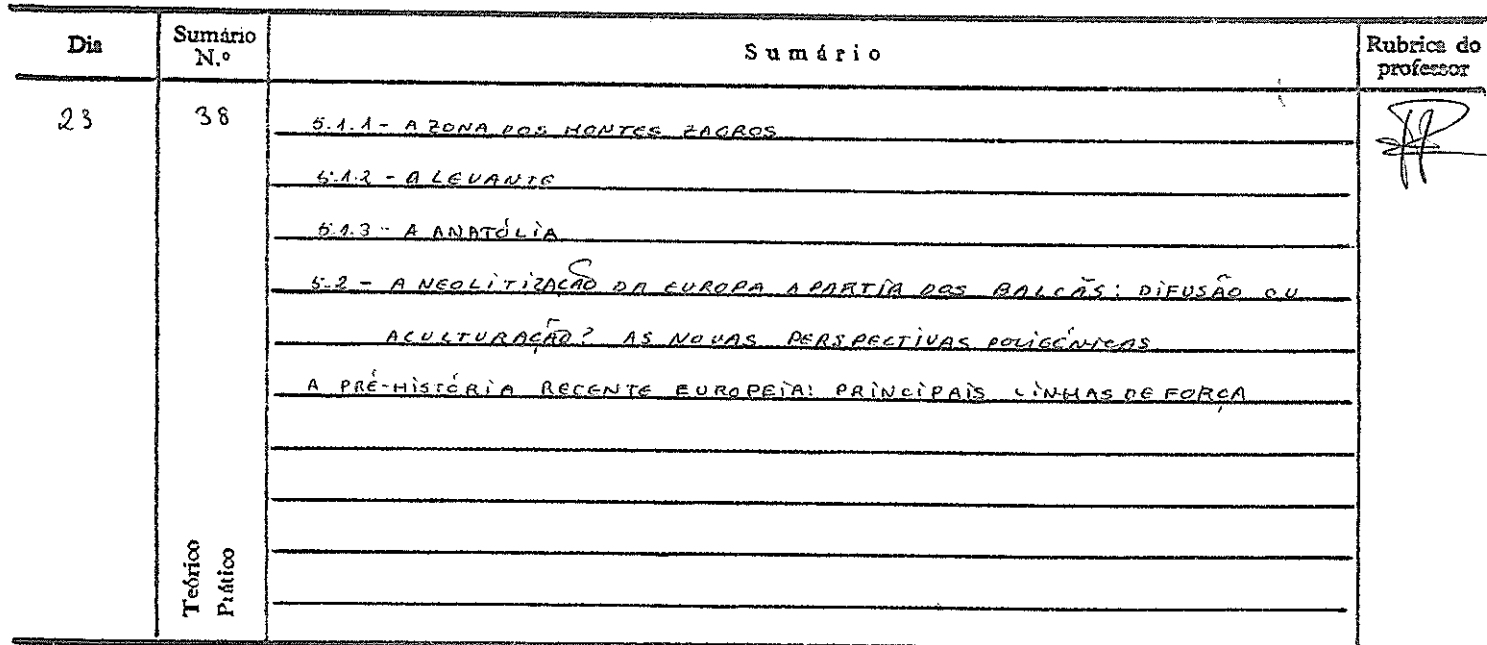 Dia Sumário N.º Sumário Rubrica do professor
23 38 5.1.1 - A ZONA DOS MONTES ZAGROS
5.1.2 - A LEVANTE
5.1.3 - A ANATÓLIA
5.2 - A NEOLITIZAÇÃO DA EUROPA A PARTIR DOS BALCÃS: DIFUSÃO OU
ACULTURAÇÃO? AS NOVAS PERSPECTIVAS POLIGÉNICAS
A PRÉ-HISTÓRIA RECENTE EUROPEIA: PRINCIPAIS LINHAS DE FORÇA
Teórico
Prático